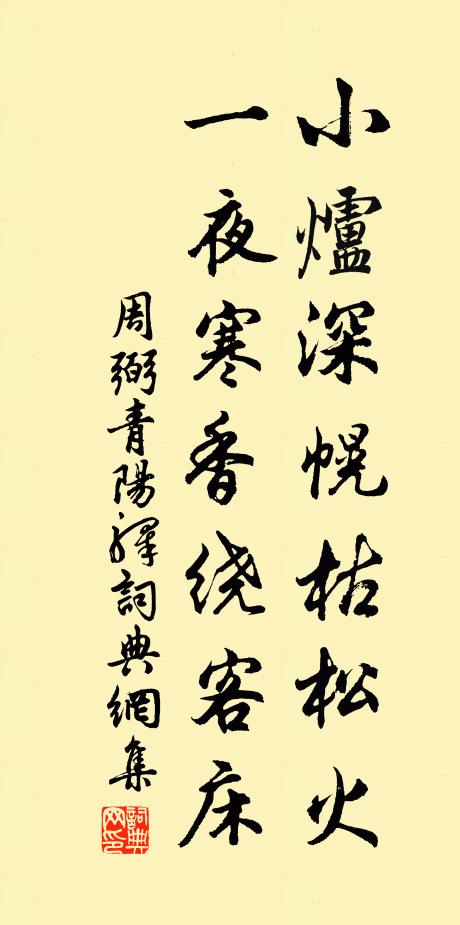 小爐深幌枯松火
一夜寒香绕客床
周弼青陽驛詞典網集
詞典网印